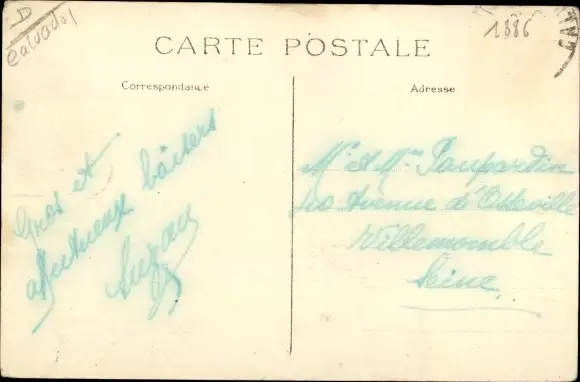 D
Calvados
1886
CARTE POSTALE
Correspondance
Adresse
Gros et
affectueux baisers
Suzanne
Mr et Mme Paupardin
Avenue d'Osseville
Villemomble
Seine